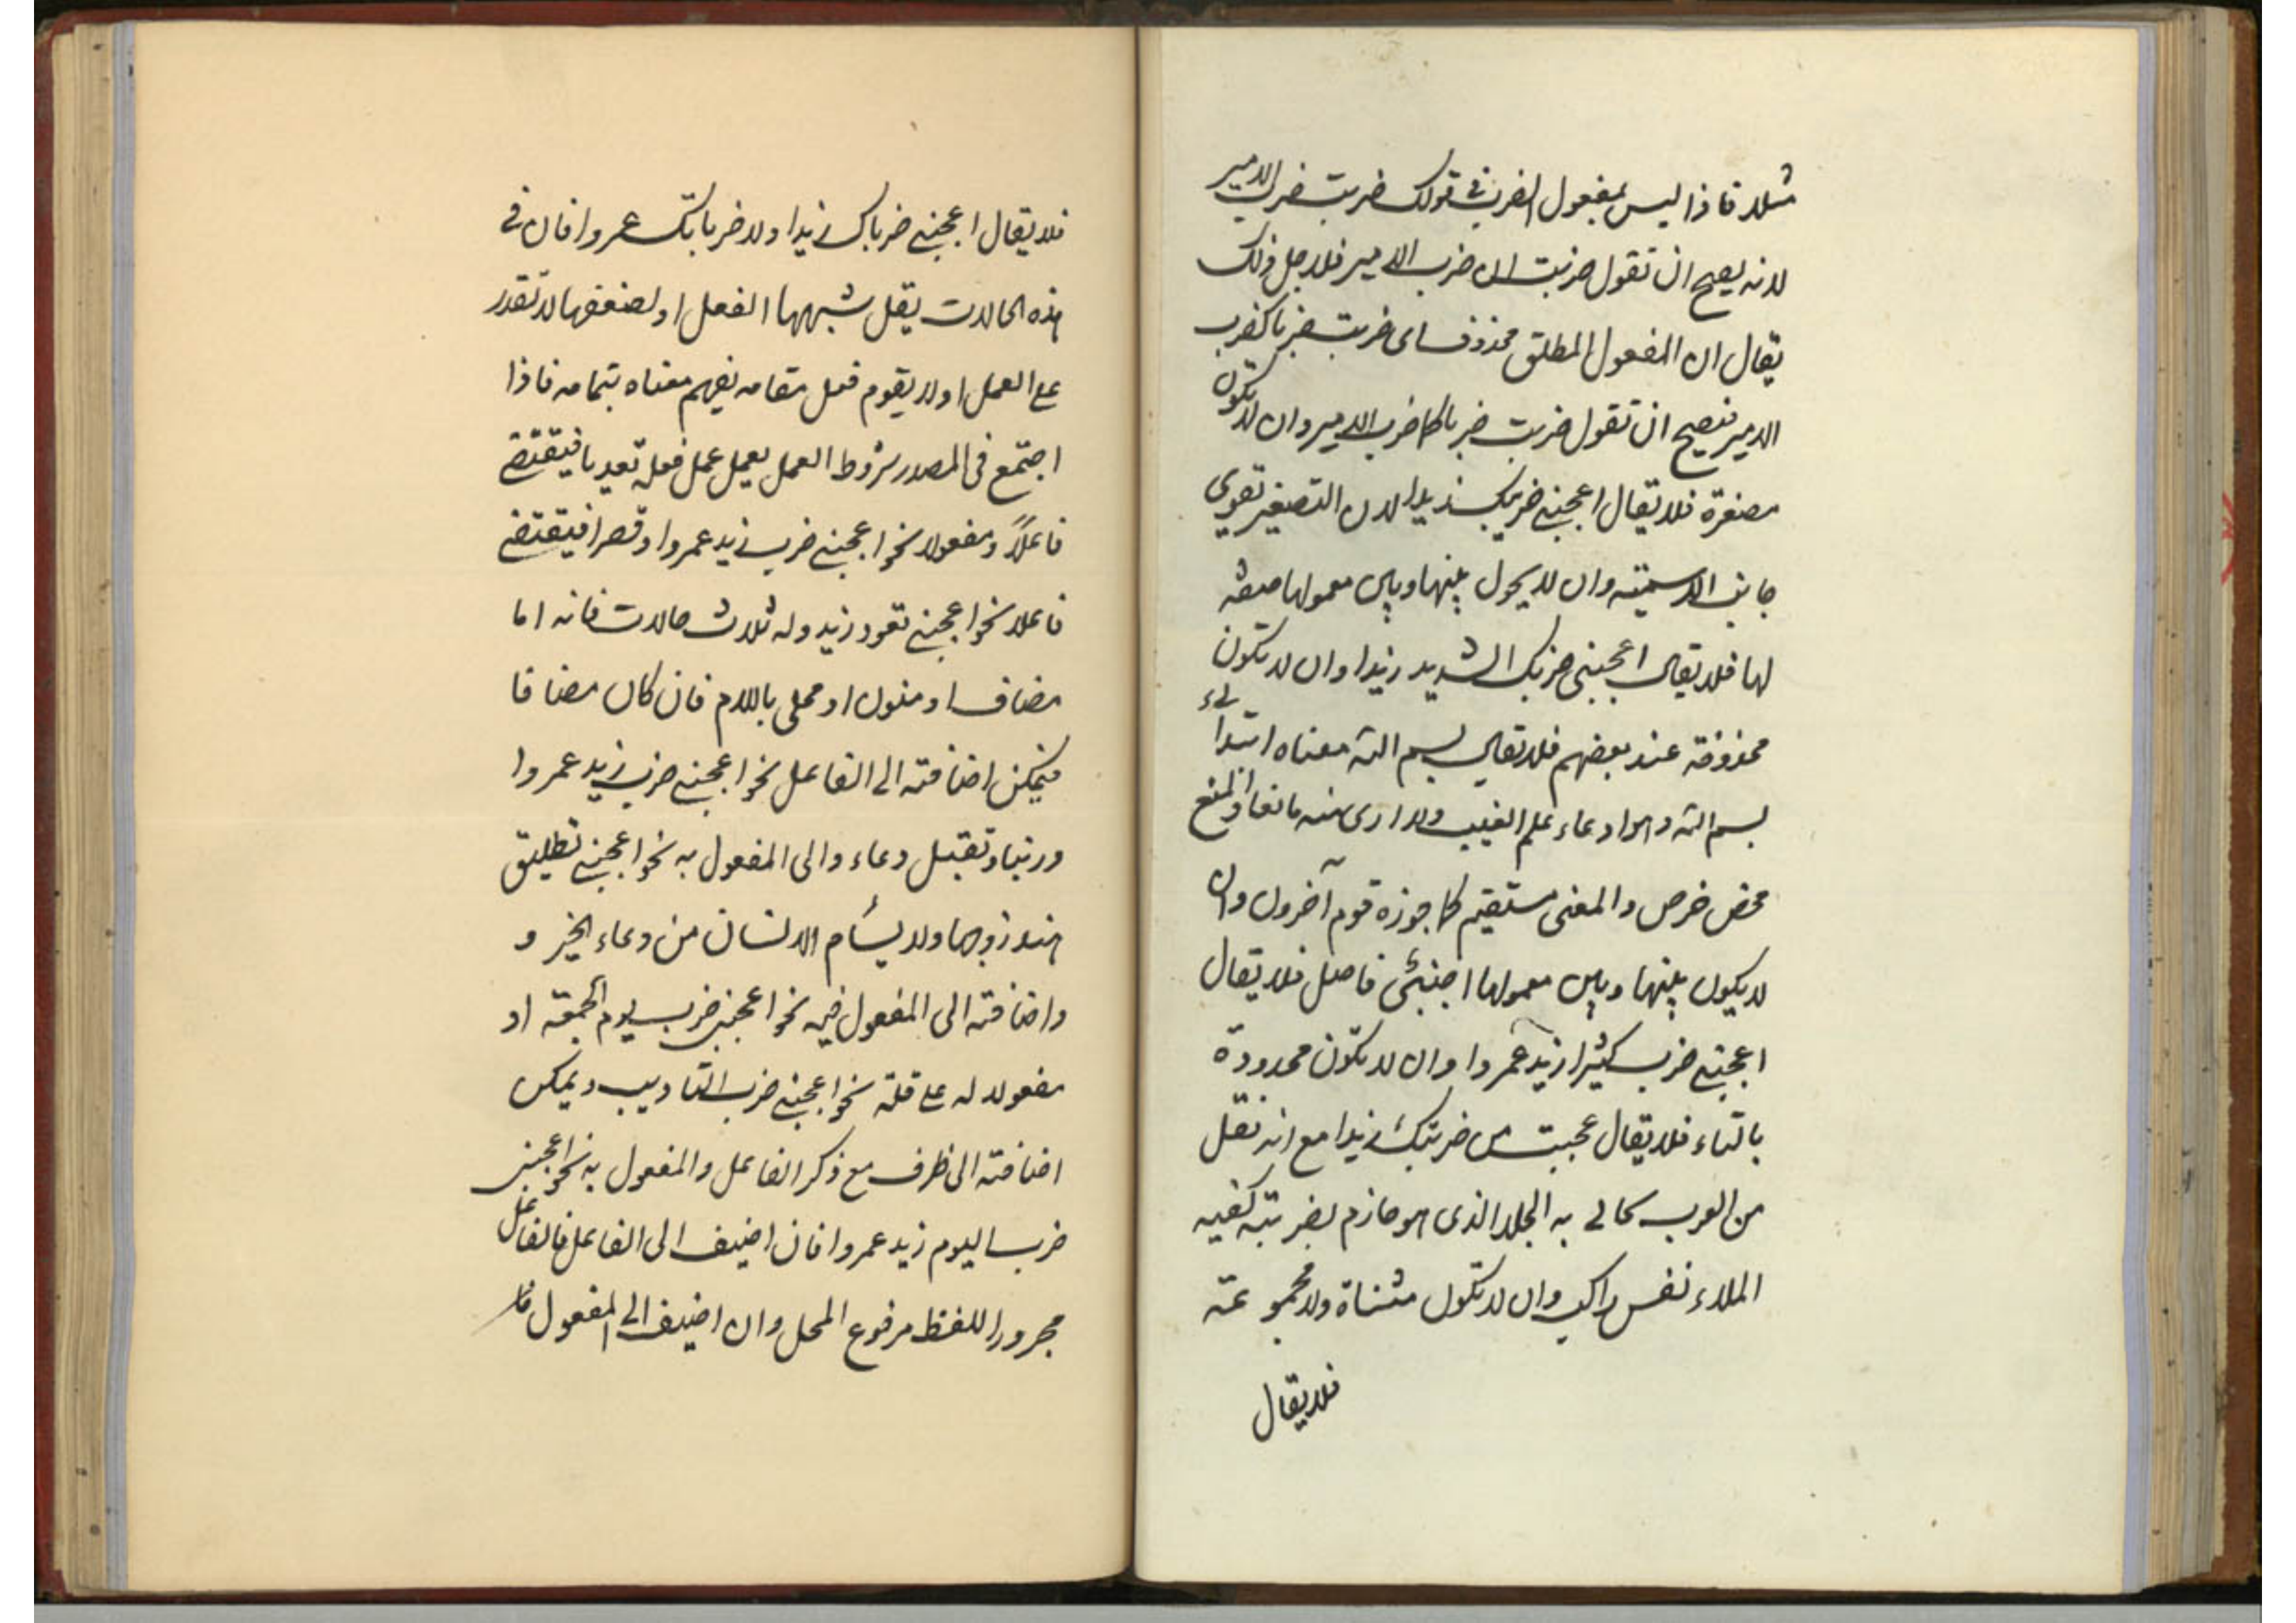 مثلا فاذا ليس بمفعول الضرب فى قولك ضربت ضرب الامير
لانه يصح ان تقول ضربت ان ضرب الامير فلاجل ذلك
يقال ان المفعول المطلق محذوف اى ضربت ضربا كضرب
الامير فيصح ان تقول ضربت ضربا كما ضرب الامير وان لا تكون
مصغرة فلا يقال اعجبنى ضريبك زيدا لان التصغير تقوى
جانب الاسمية وان لا يحول بينها وبين معمولها صفة
لها فلا يقال اعجبنى ضربك الشديد زيدا وان لا تكون
محذوفة عند بعضهم فلا يقال بسم الله معناه ابتدائى
بسم الله وهو ادعاء علم الغيب ولا ارى منه مانعا والمنع
محض خرص والمعنى مستقيم كما جوزه قوم آخرون وان
لا يكون بينها وبين معمولها اجنبى فاصل فلا يقال
اعجبنى ضرب كثيرا زيد عمروا وان لا تكون محدودة
بالتاء فلا يقال عجبت من ضربتك زيدا مع انه نقل
من العرب يحالى به الجلد الذى هو حازم بضربته كفيه
الملاء نفس راكب وان لا تكون مثناة ولا مجموعة
فلا يقال
فلا يقال اعجبنى ضرباك زيدا ولا ضرباتك عمروا فان فى
هذه الحالات يقل شبهها الفعل او لضعفها لا تقدر
على العمل او لا يقوم فعل مقامه يفهم معناه بتمامه فاذا
اجتمع فى المصدر شروط العمل يعمل عمل فعله تعديا فيقتضى
فاعلاً ومفعولا نحو اعجبنى ضرب زيد عمروا وقصرا فيقتضى
فاعلا نحو اعجبنى قعود زيد وله ثلاث حالات فانه اما
مضاف او منون او محلى باللام فان كان مضافا
فيمكن اضافته الى الفاعل نحو اعجبنى ضرب زيد عمروا
وربنا وتقبل دعاء والى المفعول به نحو اعجبنى تطليق
هند زوجها ولا يسأم الانسان من دعاء الخير و
واضافته الى المفعول فيه نحو اعجبنى ضرب يوم الجمعة او
مفعولا له على قلة نحو اعجبنى ضرب التاديب ويمكن
اضافته الى ظرف مع ذكر الفاعل والمفعول به نحو اعجبنى
ضرب اليوم زيد عمروا فان اضيف الى الفاعل فالفاعل
مجرور اللفظ مرفوع المحل وان اضيف الى المفعول